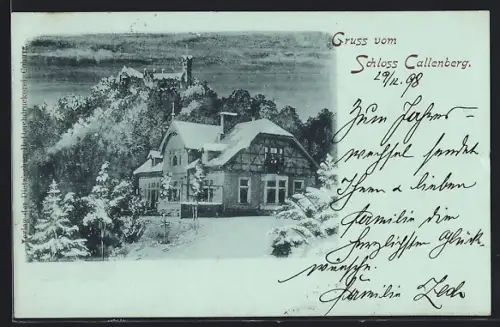 Gruss vom
Schloss Callenberg.
29/12. 98
Zum Jahres-
wechsel sendet
Ihnen & lieben
Familie die
herzlichsten Glück-
wünsche.
Familie